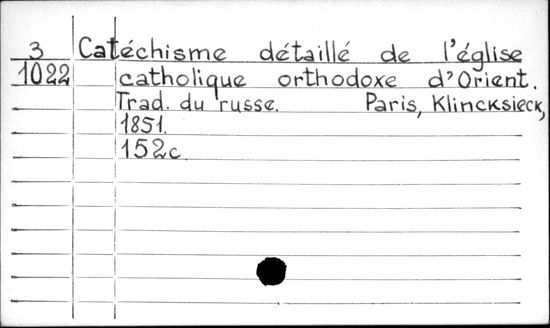 3 Catéchisme détaillé de l'église
1022 catholique orthodoxe d'Orient.
Trad. du russe. Paris, Klincksieck,
1851.
152c.